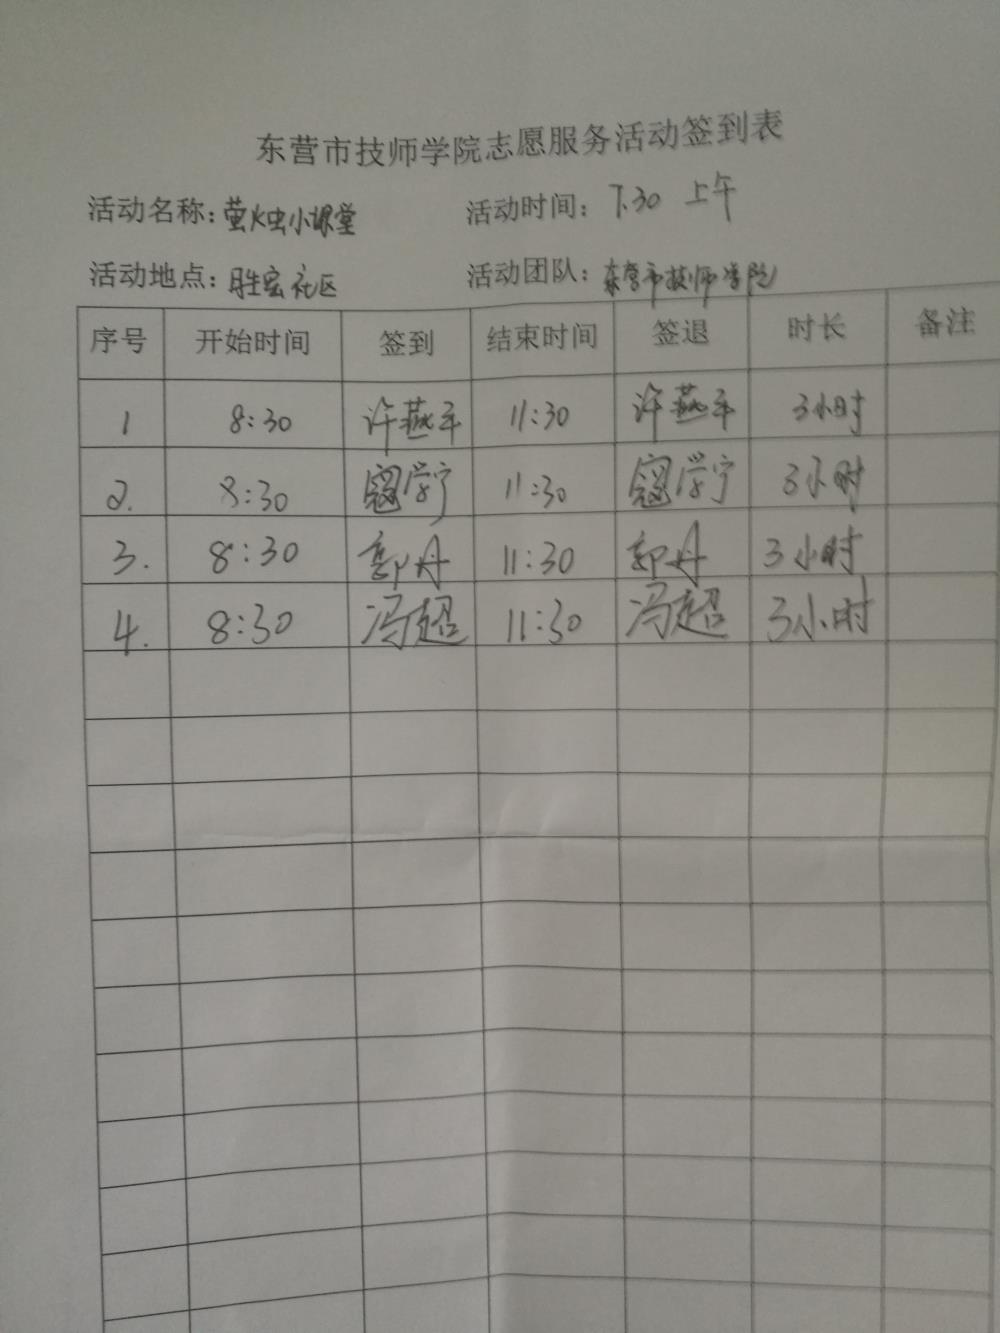 东营市技师学院志愿服务活动签到表
活动名称：萤火虫小课堂 活动时间：7.30 上午
活动地点：胜宏社区 活动团队：东营市技师学院
序号 开始时间 签到 结束时间 签退 时长 备注
1 8:30 许燕平 11:30 许燕平 3小时
2. 8:30 寇学宁 11:30 寇学宁 3小时
3. 8:30 郭丹 11:30 郭丹 3小时
4. 8:30 冯超 11:30 冯超 3小时